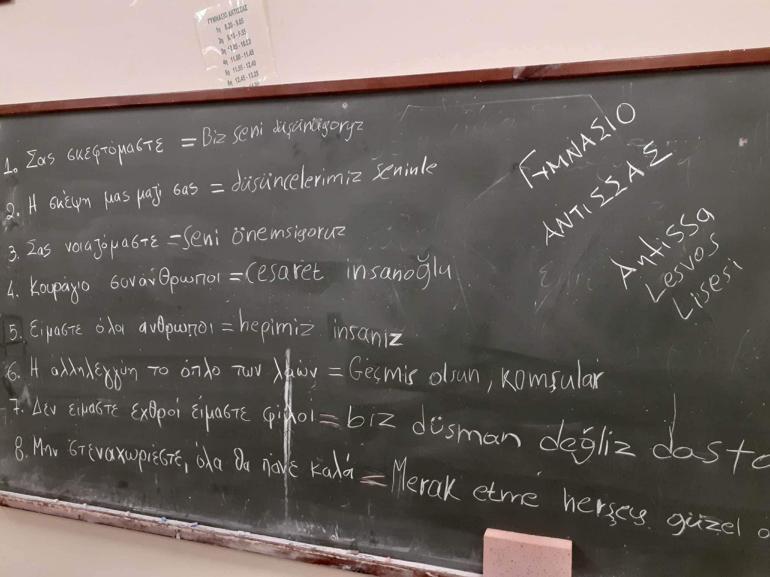 ΓΥΜΝΑΣΙΟ ΑΝΤΙΣΣΑΣ
1η 8.20 - 9.05
2η 9.10 - 9.55
3η
4η 11.00 - 11.45
5η 11.55 - 12.40
6η 12.45 - 13.25
1. Σας σκεφτόμαστε = Biz seni düşünüyoruz
2. Η σκέψη μας μαζί σας = düşüncelerimiz seninle
3. Σας νοιαζόμαστε = seni önemsiyoruz
4. Κουράγιο συνάνθρωποι = cesaret insanoğlu
5. Είμαστε όλοι άνθρωποι = hepimiz insanız
6. Η αλληλεγγύη το όπλο των λαών = Geçmis olsun, komsular
7. Δεν είμαστε εχθροί είμαστε φίλοι = biz düsman değliz
8. Μην στεναχωριέστε, όλα θα πάνε καλά = Merak etme herşey güzel
ΓΥΜΝΑΣΙΟ
ΑΝΤΙΣΣΑΣ
Antissa
Lesvos
Lisesi